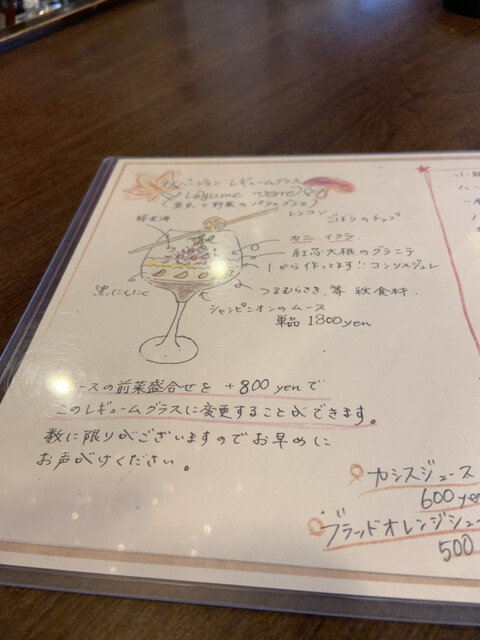 秋バージョン レギュームグラス
Légume verre
(魚貝と野菜のパフェグラス)
レンコン
ごぼうのチップ
カニ・イクラ
紅芯大根のグラニテ
1から作ってます!! コンソメジュレ
つるむらさき、等 秋食材.
黒にんにく
シャンピニオンのムース
単品 1800yen
ースの前菜盛合せを +800 yenで
このレギュームグラスに変更することができます。
数に限りがございますのでお早めに
お声がけください。
カシスジュース
600ye
ブラッドオレンジジュ
500